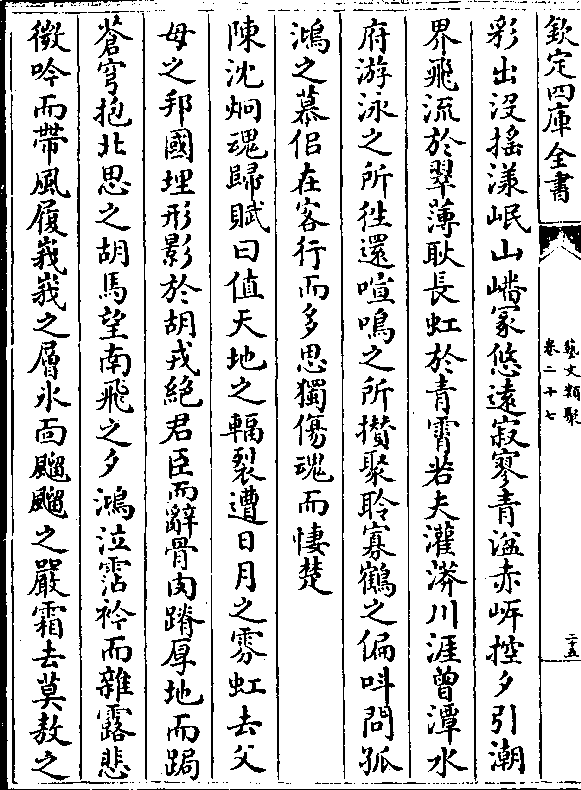 欽定四庫全書
藝文類聚
卷二十七
二十五
彩出沒揺漾岷山嶓冢悠逺寂寥青溢赤岍控夕引潮
界飛流於翠薄耿長虹於青霄若夫灌漭川涯曾潭水
府游泳之所徃還喧鳴之所攅聚聆寡鶴之偏呌問孤
鴻之慕侣在客行而多思獨傷魂而悽楚
陳沈炯魂歸賦曰值天地之輻裂遭日月之雰虹去父
母之邦國埋形影於胡戎絶君臣而辭骨肉蹐厚地而跼
蒼穹抱北思之胡馬望南飛之夕鴻泣霑衿而雜露悲
微吟而帶風履峩峩之層氷面飀飀之嚴霜去莫敖之